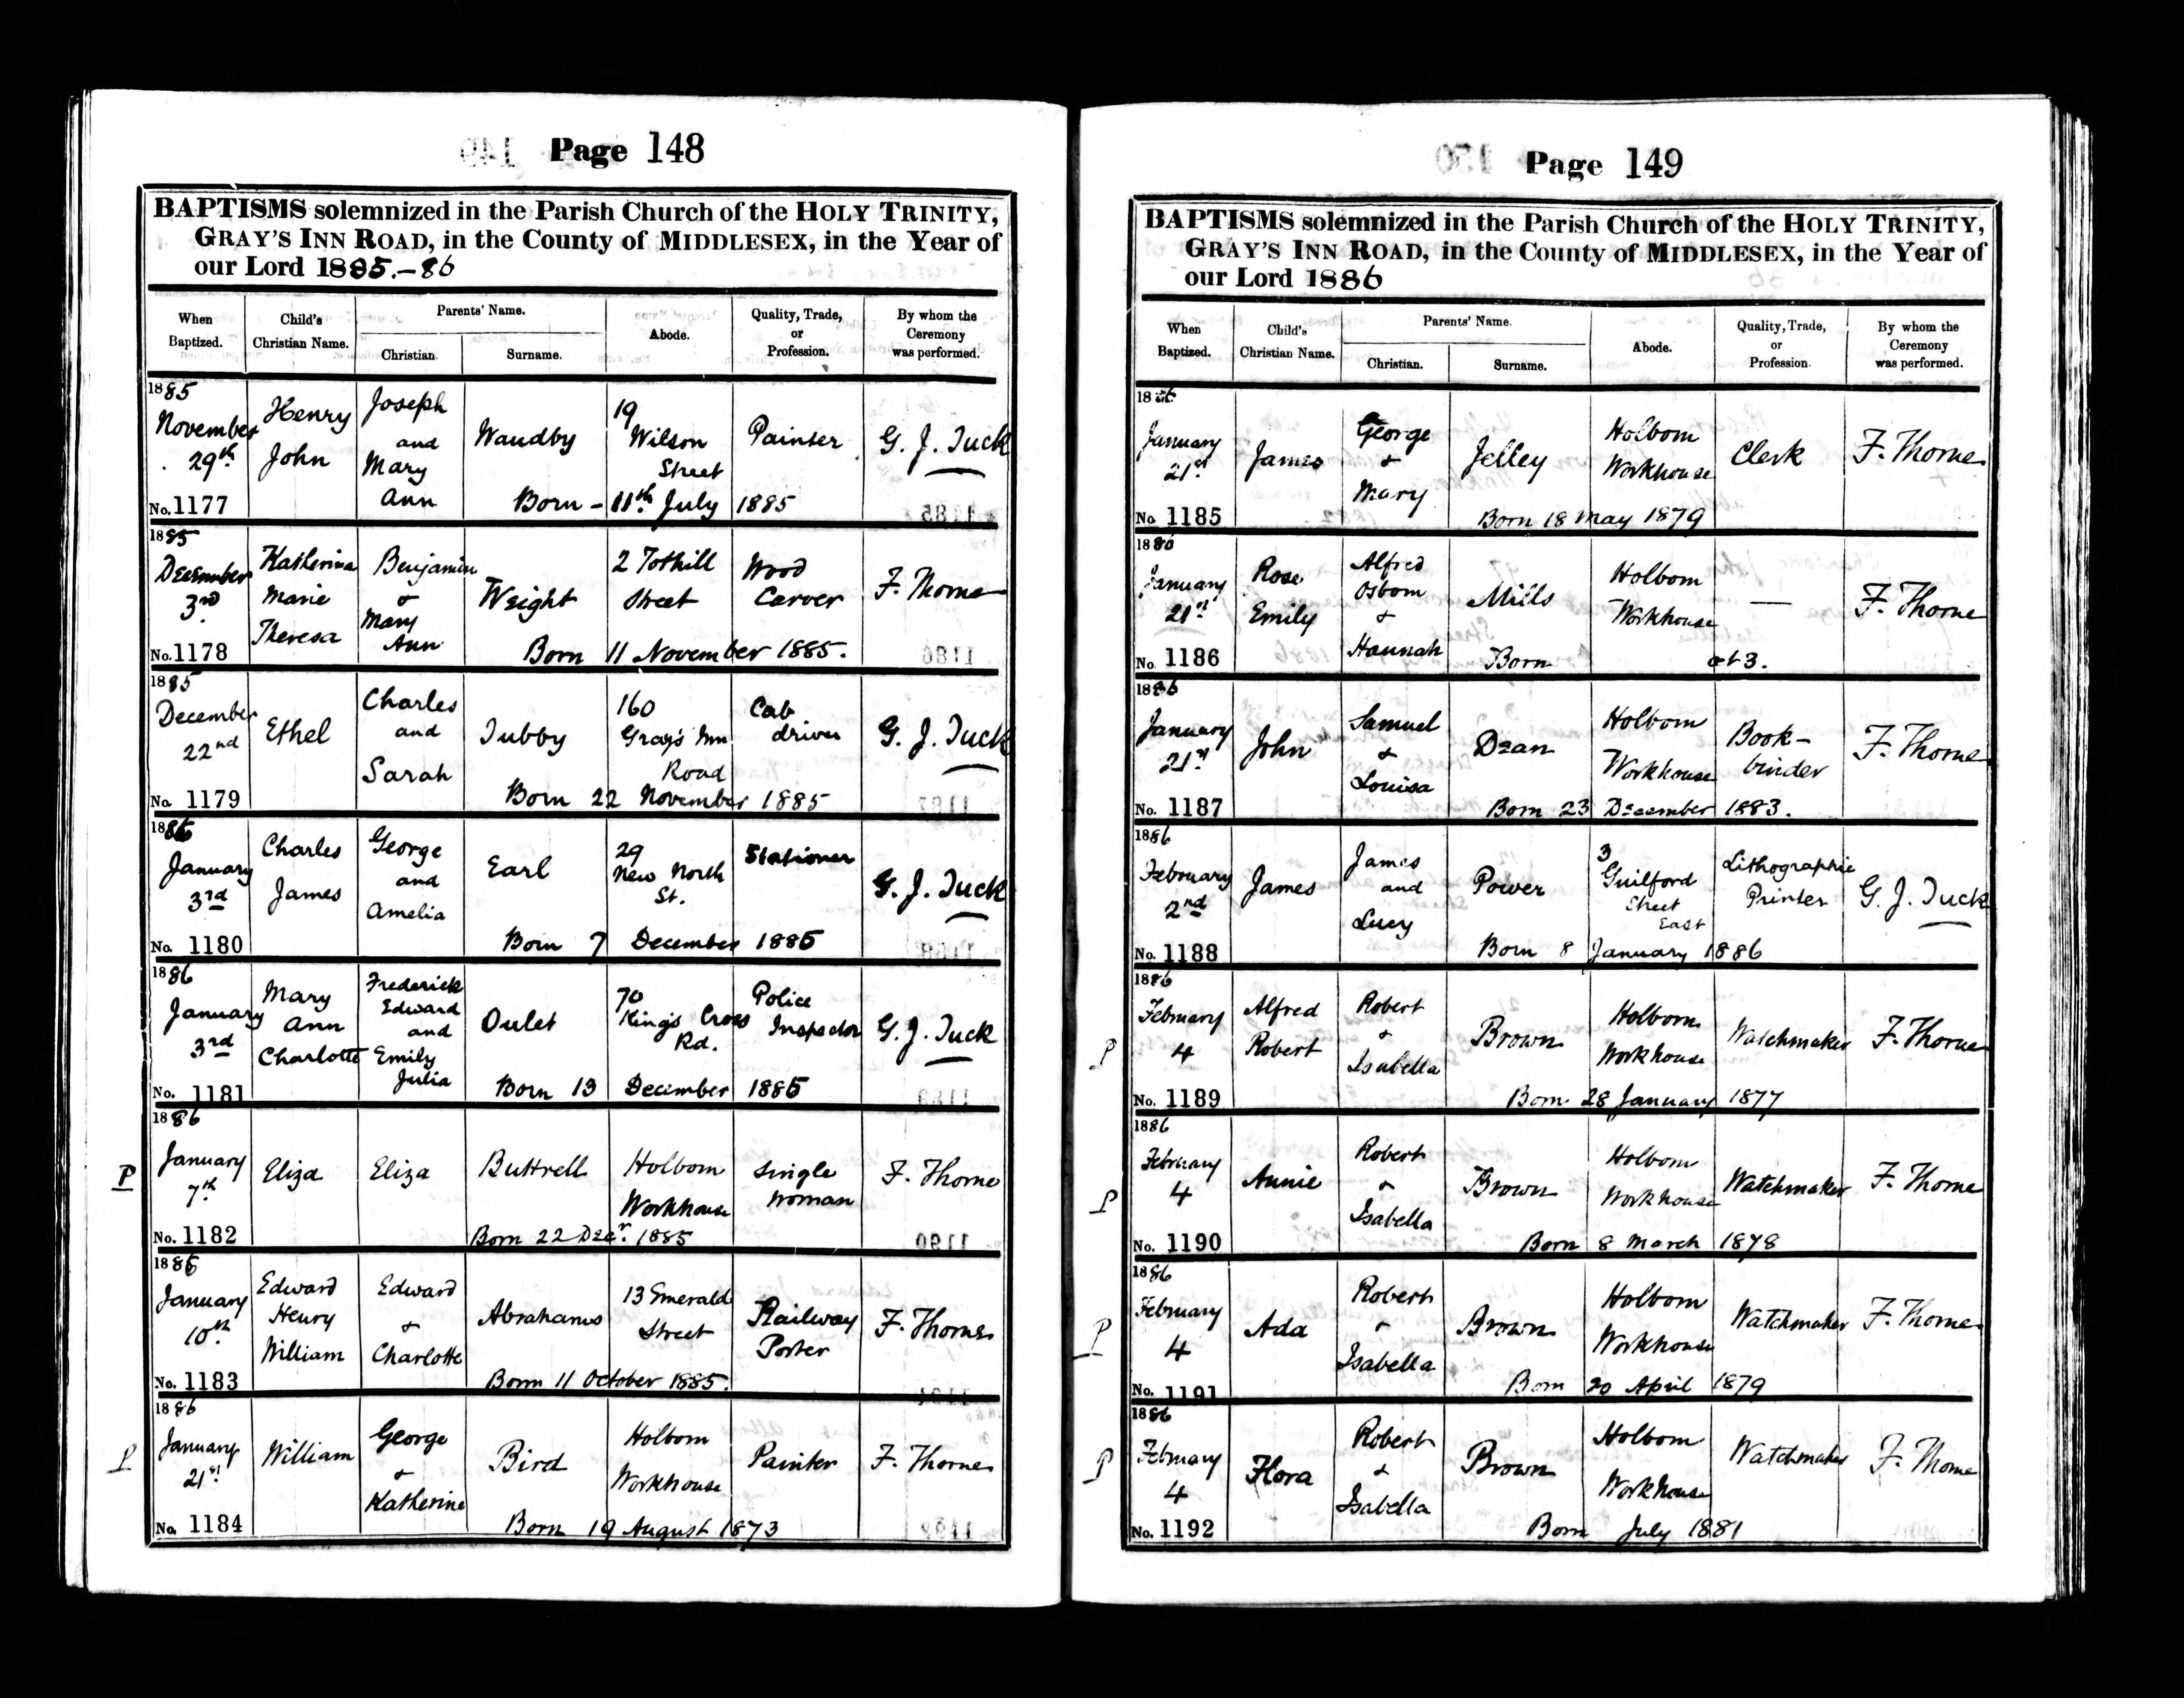 Page 148
BAPTISMS solemnized in the Parish Church of the HOLY TRINITY,
GRAY'S INN ROAD, in the County of MIDDLESEX, in the Year of
our Lord 1885.-86
When Baptized. Child's Christian Name. Parents' Name. Christian Surname. Abode. Quality, Trade, or Profession. By whom the Ceremony was performed.
1885 November 29th. No. 1177 Henry John Joseph and Mary Ann Waudby 19 Wilson Street Painter G. J. Tuck
Born - 11th July 1885
1885 December 3rd No. 1178 Katherina Marie Theresa Benjamin & Mary Ann Weight 2 Tothill Street Wood Carver F. Thorne
Born 11 November 1885.
1885 December 22nd No. 1179 Ethel Charles and Sarah Tubby 160 Gray's Inn Road Cab driver G. J. Tuck
Born 22 November 1885
1886 January 3rd No. 1180 Charles James George and Amelia Earl 29 New North St. Stationer G. J. Tuck
Born 7 December 1885
1886 January 3rd No. 1181 Mary Ann Charlotte Frederick Edward and Emily Julia Oulet 70 King's Cross Rd. Police Inspector G. J. Tuck
Born 13 December 1885
P 1886 January 7th No. 1182 Eliza Eliza Buttrell Holborn Workhouse Single Woman F. Thorne
Born 22 Decr. 1885
1886 January 10th No. 1183 Edward Henry William Edward & Charlotte Abrahams 13 Emerald Street Railway Porter F. Thorne
Born 11 October 1885.
P 1886 January 21st No. 1184 William George & Katherine Bird Holborn Workhouse Painter F. Thorne
Born 19 August 1873
Page 149
BAPTISMS solemnized in the Parish Church of the HOLY TRINITY,
GRAY'S INN ROAD, in the County of MIDDLESEX, in the Year of
our Lord 1886
When Baptized. Child's Christian Name. Parents' Name. Christian. Surname. Abode. Quality, Trade, or Profession. By whom the Ceremony was performed.
1886 January 21st No. 1185 James George & Mary Jelley Holborn Workhouse Clerk F. Thorne
Born 18 May 1879
1886 January 21st No. 1186 Rose Emily Alfred Osborn & Hannah Mills Holborn Workhouse — F. Thorne
Born æt 3.
1886 January 21st No. 1187 John Samuel & Louisa Dean Holborn Workhouse Book-binder F. Thorne
Born 23 December 1883.
1886 February 2nd No. 1188 James James and Lucy Power 3 Guilford Street East Lithographic Printer G. J. Tuck
Born 8 January 1886
P 1886 February 4 No. 1189 Alfred Robert Robert & Isabella Brown Holborn Workhouse Watchmaker F. Thorne
Born 28 January 1877
P 1886 February 4 No. 1190 Annie Robert & Isabella Brown Holborn Workhouse Watchmaker F. Thorne
Born 8 March 1878
P 1886 February 4 No. 1191 Ada Robert & Isabella Brown Holborn Workhouse Watchmaker F. Thorne
Born 20 April 1879
P 1886 February 4 No. 1192 Flora Robert & Isabella Brown Holborn Workhouse Watchmaker F. Thorne
Born July 1881